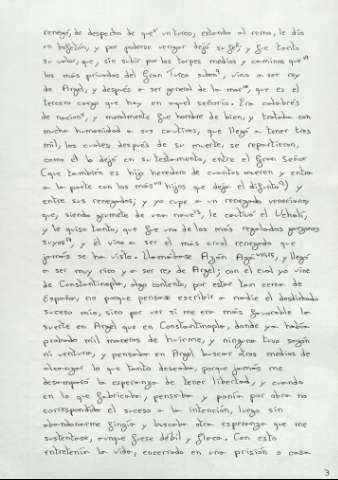 renegó, de despecho de que un turco, estando al remo, le dio
un bofetón, y por poderse vengar dejó su fe; y fue tanto
su valor, que, sin subir por los torpes medios y caminos que
los más privados del Gran Turco suben, vino a ser rey
de Argel, y después a ser general de la mar, que es el
tercero cargo que hay en aquel señorío. Era calabrés
de nación, y moralmente fue hombre de bien, y trataba con
mucha humanidad a sus cautivos, que llegó a tener tres
mil, los cuales, después de su muerte, se repartieron,
como él lo dejó en su testamento, entre el Gran Señor
(que también es hijo heredero de cuantos mueren y entra
a la parte con los más hijos que deja el difunto) y
entre sus renegados; y yo cupe a un renegado veneciano
que, siendo grumete de una nave, le cautivó el Uchalí,
y le quiso tanto, que fue uno de los más regalados garzones
suyos, y él vino a ser el más cruel renegado que
jamás se ha visto. Llamábase Azán Agá, y llegó
a ser muy rico y a ser rey de Argel; con el cual yo vine
de Constantinopla, algo contento, por estar tan cerca de
España, no porque pensase escribir a nadie el desdichado
suceso mío, sino por ver si me era más favorable la
suerte en Argel que en Constantinopla, donde ya había
probado mil maneras de huirme, y ninguna tuvo sazón
ni ventura, y pensaba en Argel buscar otros medios de
alcanzar lo que tanto deseaba, porque jamás me
desamparó la esperanza de tener libertad, y cuando
en lo que fabricaba, pensaba y ponía por obra no
correspondía el suceso a la intención, luego sin
abandonarme fingía y buscaba otra esperanza que me
sustentase, aunque fuese débil y flaca. Con esto
entretenía la vida, encerrado en una prisión o casa
3